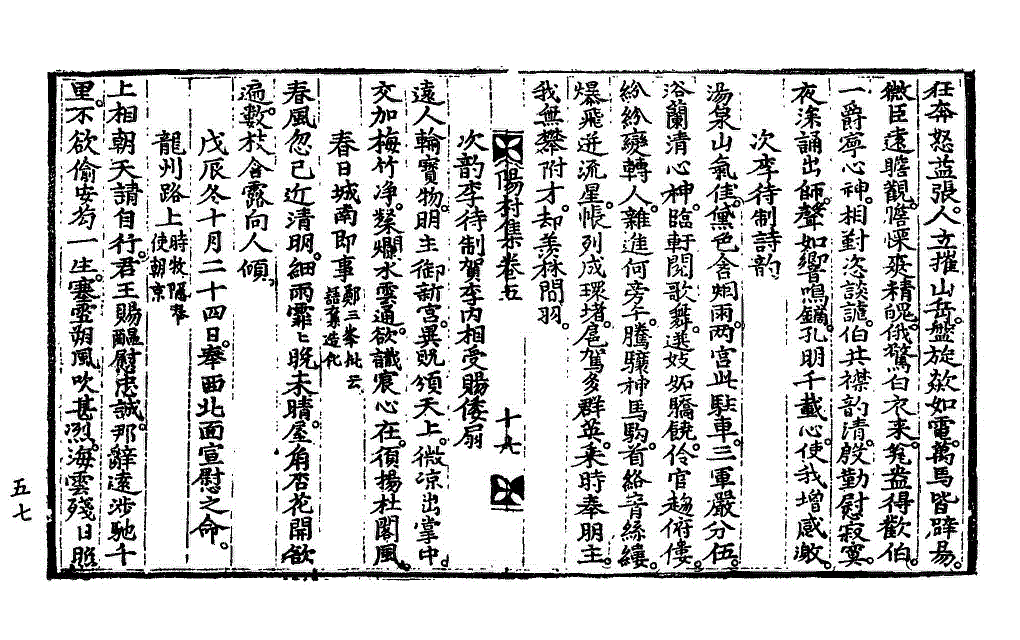 狂奔怒益張人立摧山岳盤旋欻如電萬馬皆辟易
微臣遠瞻觀澹慄喪精魄俄驚白衣來甕盎得歡伯
一爵寧心神相對恣談謔伯共襟韵清殷勤慰寂寞
夜深誦出師聲如響鳴鏑孔明千載心使我增感激
次李待制詩韵
湯泉山氣佳黛色含烟雨兩宮此駐車三軍嚴分伍
浴蘭清心神臨軒閱歌舞選妓妬驕饒伶官趨俯僂
紛紛變轉人雜進何旁午騰驤神馬駒首絡音絲縷
爆飛迸流星帳列成環堵扈駕多群英乘時奉明主
我無攀附才却羨林間羽
陽村集卷五
十九
次韵李待制賀李內相受賜倭扇
遠人輸寶物明主御新宮異貺頒天上微凉出掌中
交加梅竹净燦爛水雲通欲識褒心在須揚杜閣風
春日城南即事 鄭三峯批云語奪造化
春風忽已近清明細雨霏〻晩未晴屋角杏花開欲
遍數枝含露向人傾
戊辰冬十月二十四日奉西北面宣慰之命
龍州路上 時牧隱奉使朝京
上相朝天請自行君王賜醞慰忠誠那辭遠涉馳千
里不欲偷安苟一生塞雪朔風吹甚烈海雲殘日照
五七